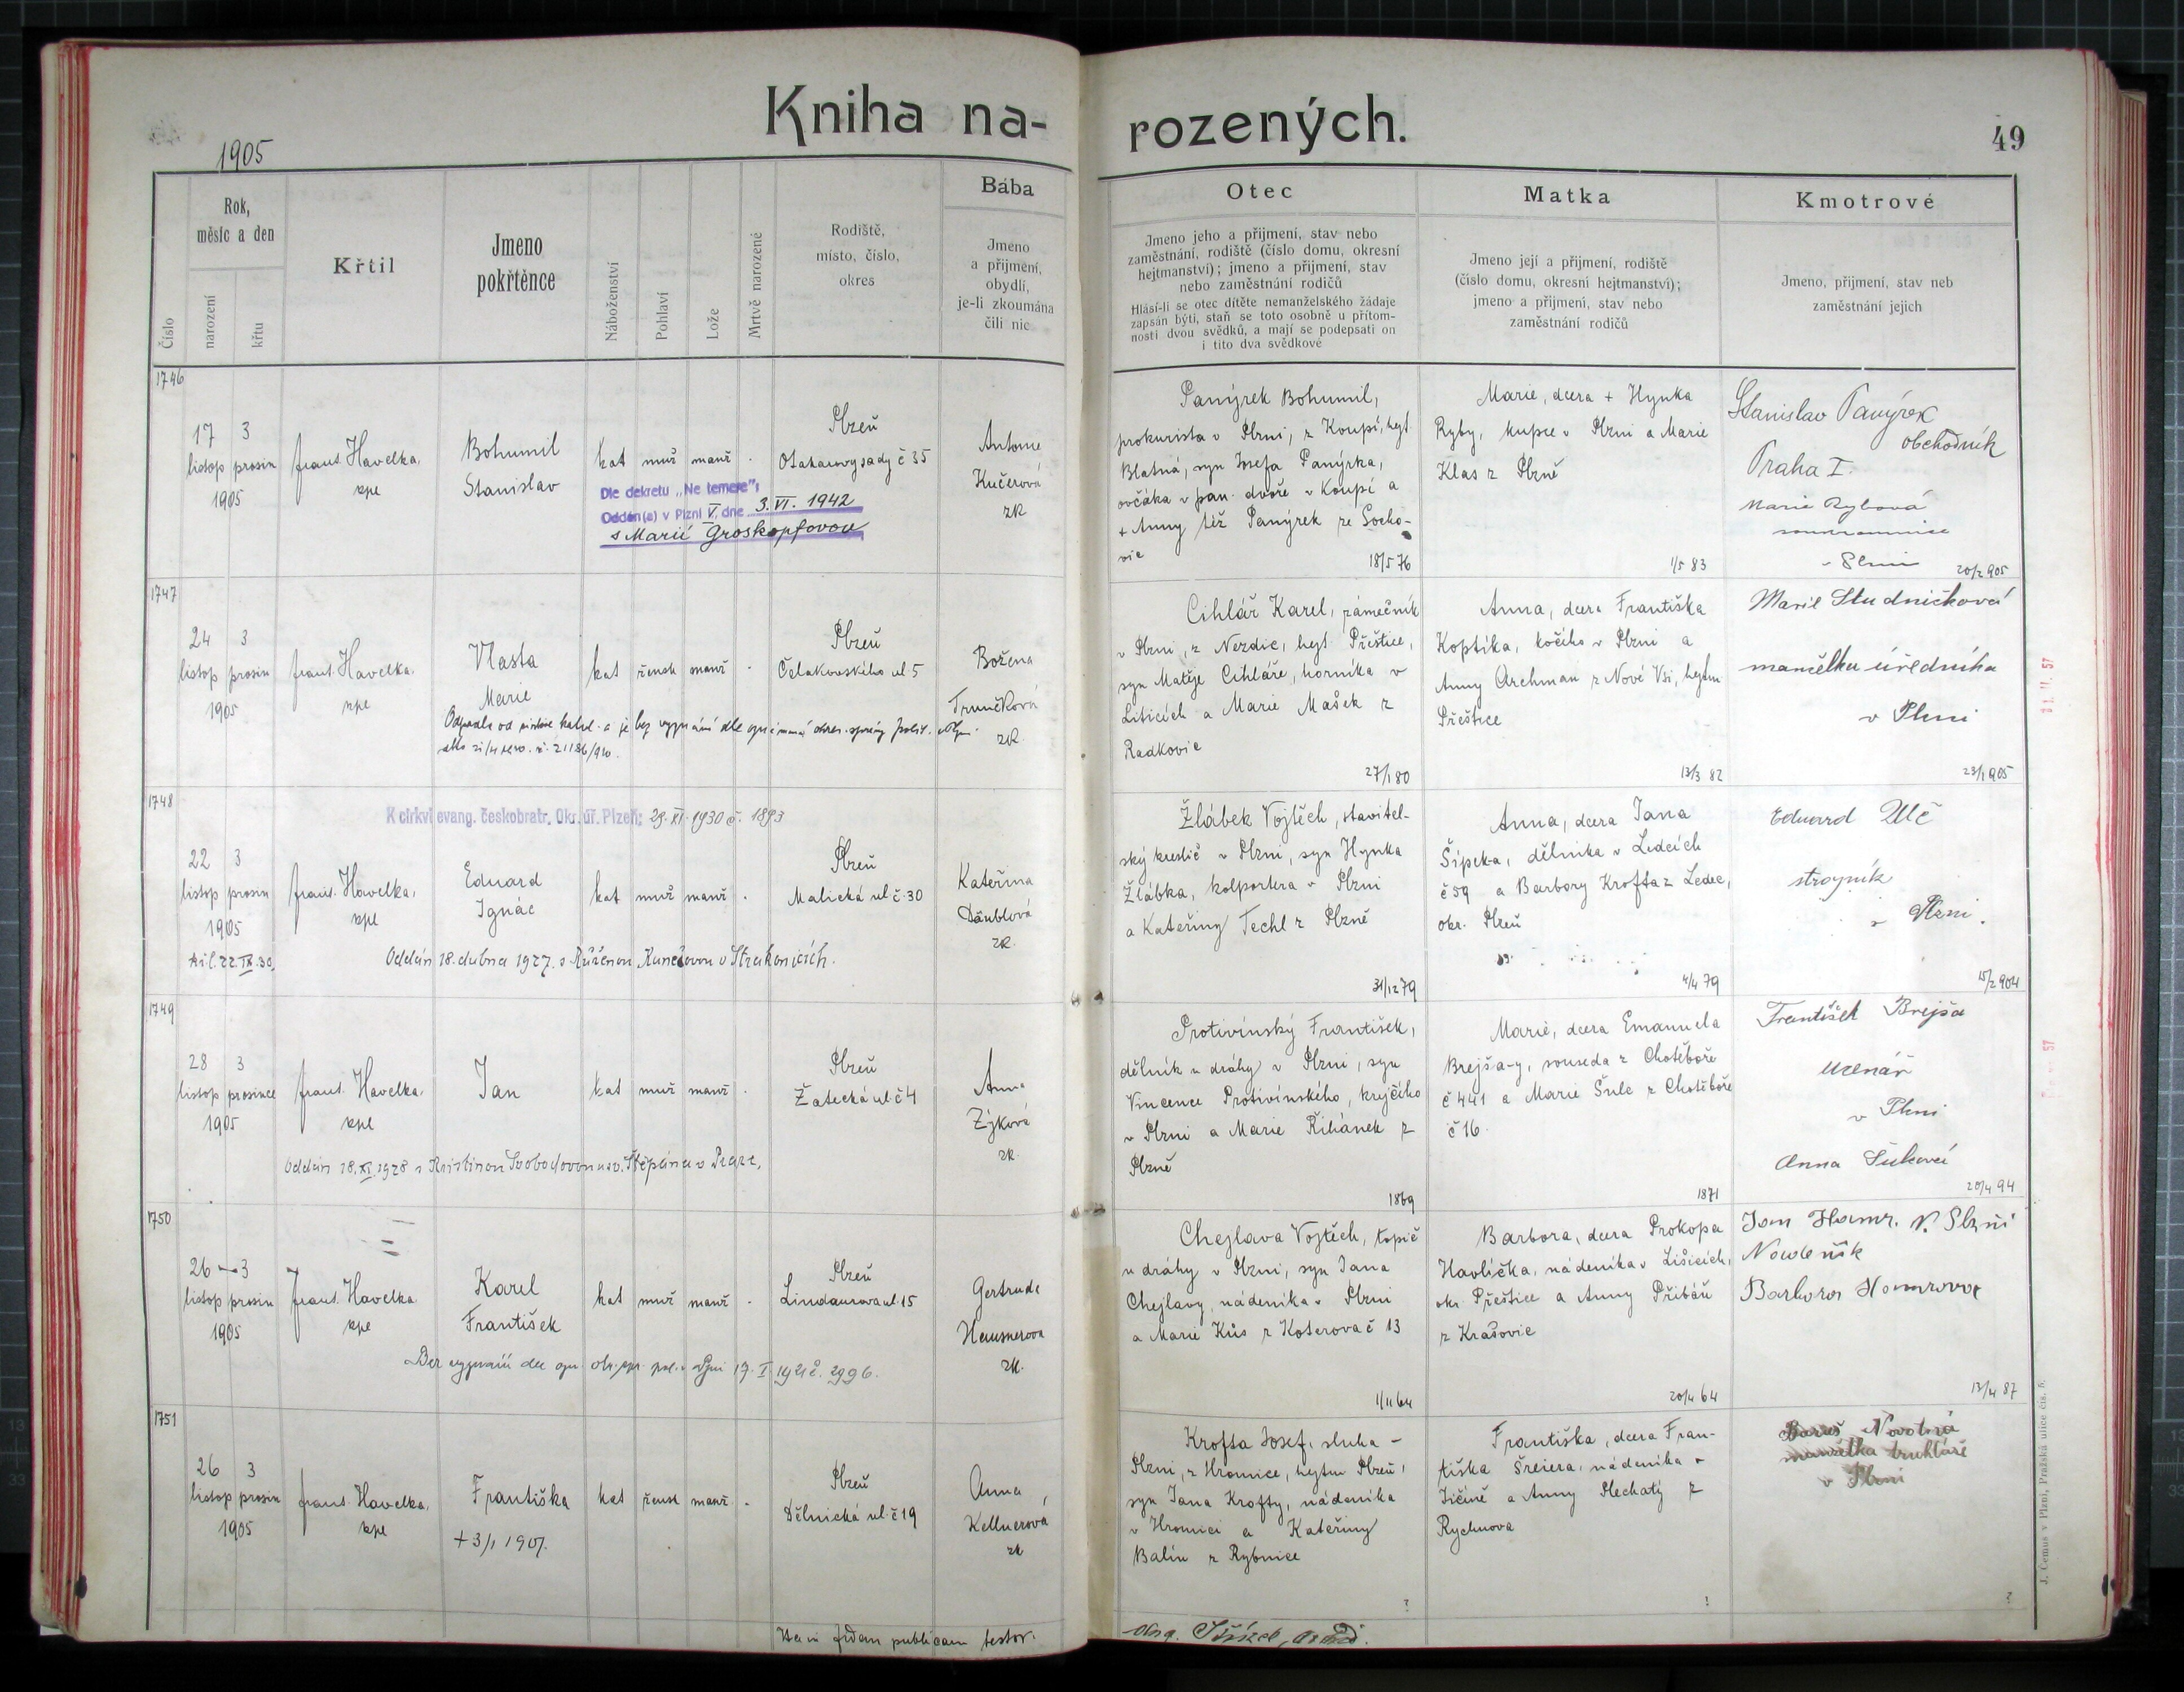 Kniha na-
rozených.
49
1905
Číslo
Rok,
měsíc a den
narození
křtu
Křtil
Jmeno
pokřtěnce
Náboženství
Pohlaví
Lože
Mrtvě narozené
Rodiště,
místo, číslo,
okres
Bába
Jmeno
a přijmení,
obydlí,
je-li zkoumána
čili nic
Otec
Jmeno jeho a přijmení, stav nebo
zaměstnání, rodiště (číslo domu, okresní
hejtmanství); jmeno a přijmení, stav
nebo zaměstnání rodičů
Hlásí-li se otec dítěte nemanželského žádaje
zapsán býti, staň se toto osobně u přítom-
nosti dvou svědků, a mají se podepsati on
i tito dva svědkové
Matka
Jmeno její a přijmení, rodiště
(číslo domu, okresní hejtmanství);
jmeno a přijmení, stav nebo
zaměstnání rodičů
Kmotrové
Jmeno, přijmení, stav neb
zaměstnání jejich
1746
17 3
listop prosin
1905
frant. Havelka,
kpl
Bohumil
Stanislav
kat muž manž .
Dle dekretu „Ne temere":
Oddán(a) v Plzni V, dne 3. VI. 1942
s Marií Groskopfovou
Plzeň
Otakarovy sady č 35
Antonie
Kučerová
zk
Panýrek Bohumil,
prokurista v Plzni, z Koupí, hejt
Blatná, syn Josefa Panýrka,
ovčáka v pan. dvoře v Koupí a
+ Anny též Panýrek ze Socho-
vic
18/5 76
Marie, dcera + Hynka
Ryby, kupce v Plzni a Marie
Klas z Plzně
1/5 83
Stanislav Panýrek
obchodník
Praha I.
Marie Rybová
soukromnice
v Plzni
20/2 905
1747
24 3
listop prosin
1905
frant. Havelka,
kpl
Vlasta
Marie
kat žensk manž .
Plzeň
Čelakovského ul 5
Božena
Trunečková
zk.
Cihlář Karel, zámečník
v Plzni, z Nezdic, hejt Přeštice,
syn Matěje Cihláře, horníka v
Liticích a Marie Mašek z
Radkovic
27/1 80
Anna, dcera Františka
Koptíka, kočího v Plzni a
Anny Archman z Nové Vsi, hejtm
Přeštice
13/3 82
Marie Studničková
manželka úředníka
v Plzni
23/1 905
1748
K církvi evang. českobratr. Okr. úř. Plzeň: 29. XI. 1930 č. 1893
22 3
listop prosin
1905
frant. Havelka,
kpl
Eduard
Ignác
kat muž manž .
Plzeň
Malická ul č. 30
Kateřina
Däublová
zk.
Oddán 18. dubna 1927. s Růženou Kunešovou v Strakonicích.
Žlábek Vojtěch, stavitel-
ský kreslič v Plzni, syn Hynka
Žlábka, kolportera v Plzni
a Kateřiny Techl z Plzně
31/12 79
Anna, dcera Jana
Šípek-a, dělníka v Ledcích
č 59 a Barbory Krofta z Ledec,
okr. Plzeň
4/4 79
Eduard Ulč
strojník
v Plzni.
15/2 904
1749
28 3
listop prosince
1905
frant. Havelka,
kpl
Jan
kat muž manž .
Plzeň
Žatecká ul. č 4
Anna
Zýková
zk.
Oddán 18. XI. 1928 s Kristinou Svobodovou u sv. Štěpána v Praze.
Protivínský František,
dělník u dráhy v Plzni, syn
Vincence Protivínského, krejčího
v Plzni a Marie Řihánek z
Plzně
1869
Marie, dcera Emanuela
Brejša-y, souseda z Chotěboře
č 441 a Marie Šulc z Chotěboře
č 16.
1871
František Brejša
uzenář
v Plzni
Anna
20/4 94
1750
26 3
listop prosin
1905
frant. Havelka
kpl
Karel
František
kat muž manž .
Plzeň
Lindaurova ul. 15
Gertruda
Heusnerova
zk.
Chejlava Vojtěch, topič
u dráhy v Plzni, syn Jana
Chejlavy, nádeníka v Plzni
a Marie Kůs z Koterova č 13
1/11 64
Barbora, dcera Prokopa
Havlíčka, nádeníka v Lišicích,
okr. Přeštice a Anny Přibáň
z Krašovic
20/4 64
Jan Hamr. v. Plzni
Barbora Hamrova
13/4 87
1751
26 3
listop prosin
1905
frant. Havelka,
kpl
Františka
+ 3/1 1907.
kat žensk manž .
Plzeň
Dělnická ul. č 19
Anna
Kellnerová
zk
Krofta Josef, sluha v
Plzni, z Hromice, hejtm Plzeň,
syn Jana Krofty, nádeníka
v Hromici a Kateřiny
Balín z Rybnice
?
Františka, dcera Fran-
tiška Šreiera, nádeníka v
Jičíně a Anny Plechatý z
Rychnova
!
Novotná
manželka truhláře
v Plzni
?
Haec fidem publicam testor.
J. Čemus v Plzni, Pražská ulice čís. 8.